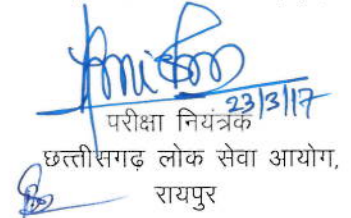 23/3/17
परीक्षा नियंत्रक
छत्तीसगढ़ लोक सेवा आयोग,
रायपुर